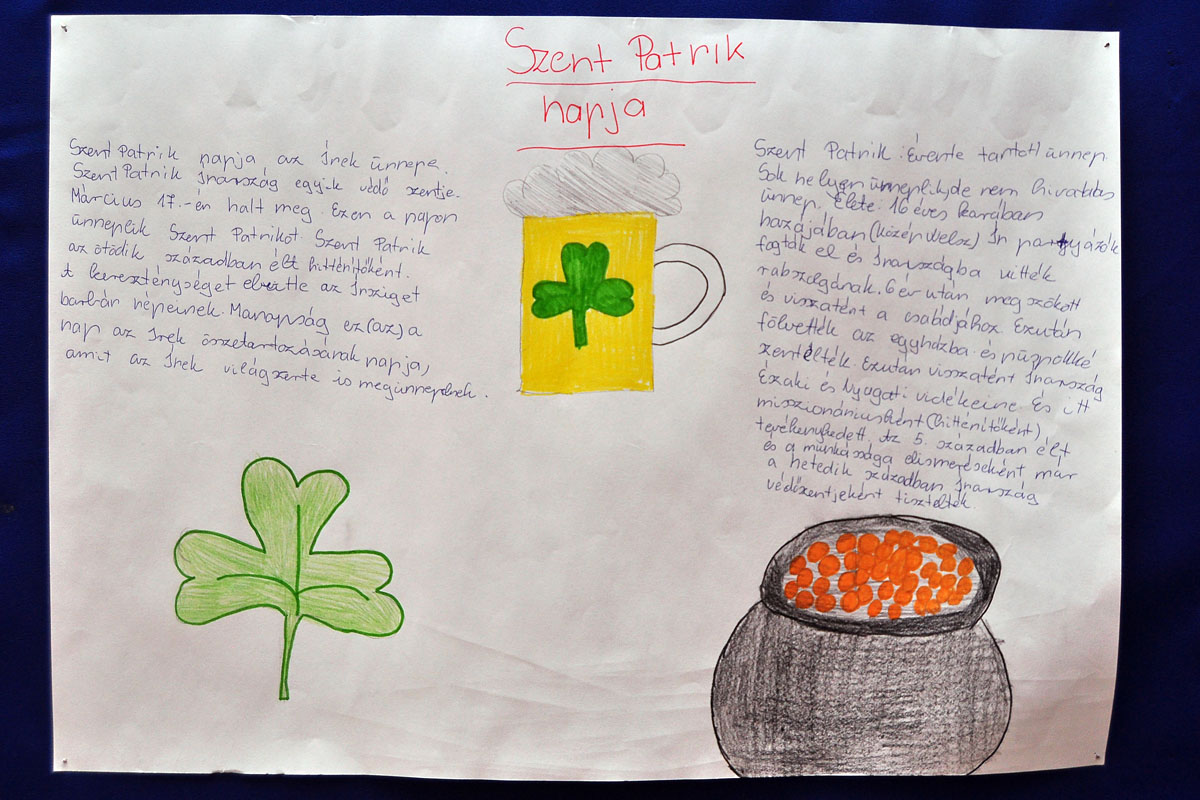 Szent Patrik
napja
Szent Patrik napja az Írek ünnepe.
Szent Patrik Írország egyik védő szentje.
Március 17.-én halt meg. Ezen a napon
ünneplik Szent Patrikot. Szent Patrik
az ötödik században élt hittérítőként.
t kereszténységet elvitte az Írsziget
barbár népeinek. Manapság ez(az) a
nap az Írek összetartozásának napja,
amit az Írek világszerte is megünnepelnek.
Szent Patrik: Évente tartott ünnep.
Sok helyen ünneplik, de nem hivatalos
ünnep. Élete: 16 éves korában
hazájában (közép Welsz) Ír portyázók
fogták el és Írországba vitték
rabszolgának. 6 év után megszökött
és visszatért a családjához. Ezután
fölvették az egyházba és püspökké
szentelték. Ezután visszatért Írország
Északi és Nyugati vidékeire. És itt
misszionáriusként (hittérítőként)
tevékenykedett. Az 5. században élt
és a munkássága elismeréseként már
a hetedik században Írország
védőszentjeként tisztelték